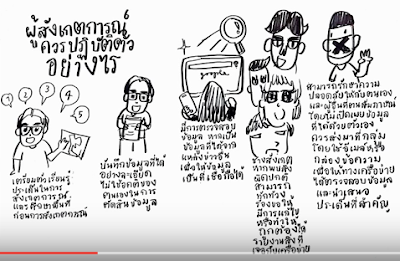 ผู้สังเกตการณ์
ควรปฏิบัติตัว
อย่างไร
1
2
3
4
5
เตรียมตัวเรียนรู้
ประเด็นในการ
สังเกตการณ์
และศึกษาพื้นที่
ก่อนการสังเกตการณ์
บันทึกข้อมูลที่ได้
อย่างละเอียด
ไม่ใช้อคติของ
ตนเองในการ
ตัดสินข้อมูล
google
มีการตรวจสอบ
ข้อมูล หากเป็น
ข้อมูลที่ได้จาก
แหล่งข่าวอื่น
เพื่อให้ข้อมูล
เป็นที่เชื่อถือได้
หากพบสิ่ง
ผิดปกติ
สามารถ
ทักท้วง
ร้องขอให้
มีการแก้ไข
หรือทำให้
ถูกต้องได้
รายงานสิ่งที่
สามารถรักษาความ
ปลอดภัยให้กับตนเอง
และผู้อื่นที่ตนสัมภาษณ์
โดยไม่เปิดเผยข้อมูล
ที่ได้ด้วยตัวเอง
ควรส่งมาที่กลุ่ม
โดยใช้อีเมลหรือ
กล่องข้อความ
เพื่อให้ทางเครือข่าย
ได้ตรวจสอบข้อมูล
และนำเสนอ
ประเด็นที่สำคัญ